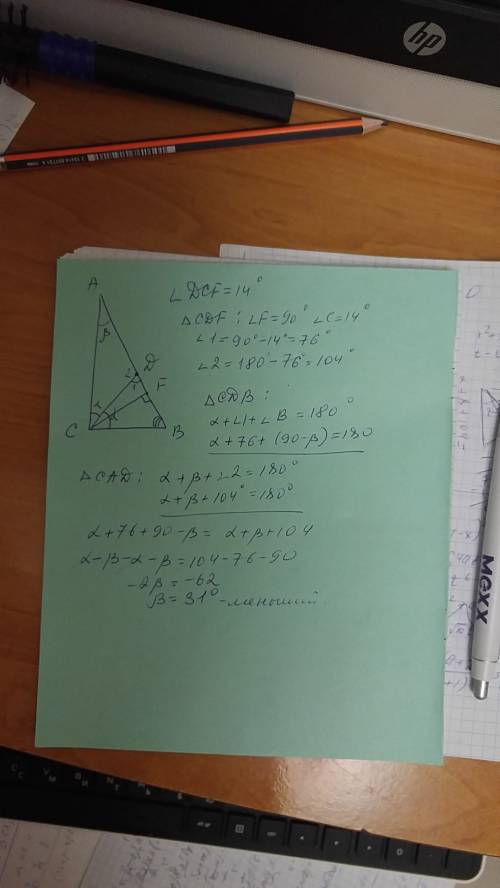 hp
A
β
D
2
1
F
α
C
B
∠DCF = 14°
△CDF: ∠F = 90° ∠C = 14°
∠1 = 90° - 14° = 76°
∠2 = 180° - 76° = 104°
△CDB:
α + ∠1 + ∠B = 180°
α + 76 + (90 - β) = 180
△CAD: α + β + ∠2 = 180°
α + β + 104° = 180°
α + 76 + 90 - β = α + β + 104
α - β - α - β = 104 - 76 - 90
-2β = -62
β = 31° - меньший
MEXX